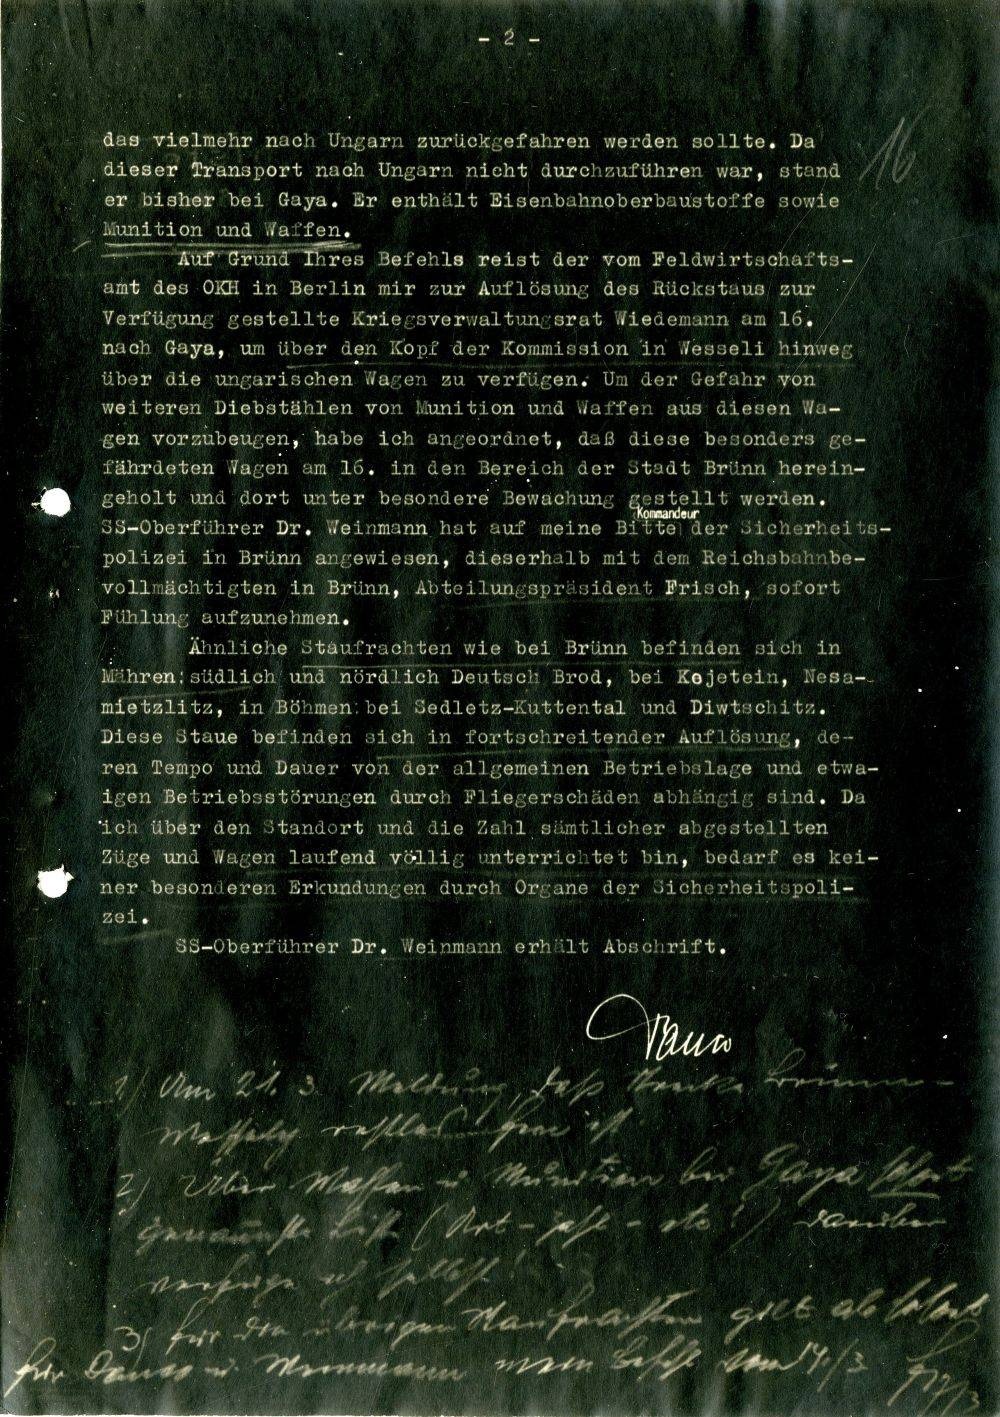 - 2 -
16
das vielmehr nach Ungarn zurückgefahren werden sollte. Da
dieser Transport nach Ungarn nicht durchzuführen war, stand
er bisher bei Gaya. Er enthält Eisenbahnoberbaustoffe sowie
Munition und Waffen.
Auf Grund Ihres Befehls reist der vom Feldwirtschafts-
amt des OKH in Berlin mir zur Auflösung des Rückstaus zur
Verfügung gestellte Kriegsverwaltungsrat Wiedemann am 16.
nach Gaya, um über den Kopf der Kommission in Wesseli hinweg
über die ungarischen Wagen zu verfügen. Um der Gefahr von
weiteren Diebstählen von Munition und Waffen aus diesen Wa-
gen vorzubeugen, habe ich angeordnet, daß diese besonders ge-
fährdeten Wagen am 16. in den Bereich der Stadt Brünn herein-
geholt und dort unter besondere Bewachung gestellt werden.
Kommandeur
SS-Oberführer Dr. Weinmann hat auf meine Bitte der Sicherheits-
polizei in Brünn angewiesen, dieserhalb mit dem Reichsbahnbe-
vollmächtigten in Brünn, Abteilungspräsident Frisch, sofort
Fühlung aufzunehmen.
Ähnliche Staufrachten wie bei Brünn befinden sich in
Mähren: südlich und nördlich Deutsch Brod, bei Kojetein, Nesa-
mietzlitz, in Böhmen: bei Sedletz-Kuttental und Diwtschitz.
Diese Staue befinden sich in fortschreitender Auflösung, de-
ren Tempo und Dauer von der allgemeinen Betriebslage und etwa-
igen Betriebsstörungen durch Fliegerschäden abhängig sind. Da
ich über den Standort und die Zahl sämtlicher abgestellten
Züge und Wagen laufend völlig unterrichtet bin, bedarf es kei-
ner besonderen Erkundungen durch Organe der Sicherheitspoli-
zei.
SS-Oberführer Dr. Weinmann erhält Abschrift.
1) Am 21. 3. Meldung, daß Strecke Brünn-
ist.
2) Über Waffen u. Munition bei Gaya sofort
genaueste Liste (Art - Zahl - etc!) darüber
verfüge ich selbst!
3) für die übrigen Staufrachten gilt als
für Danco u. Weinmann mein Befehl vom 14/3